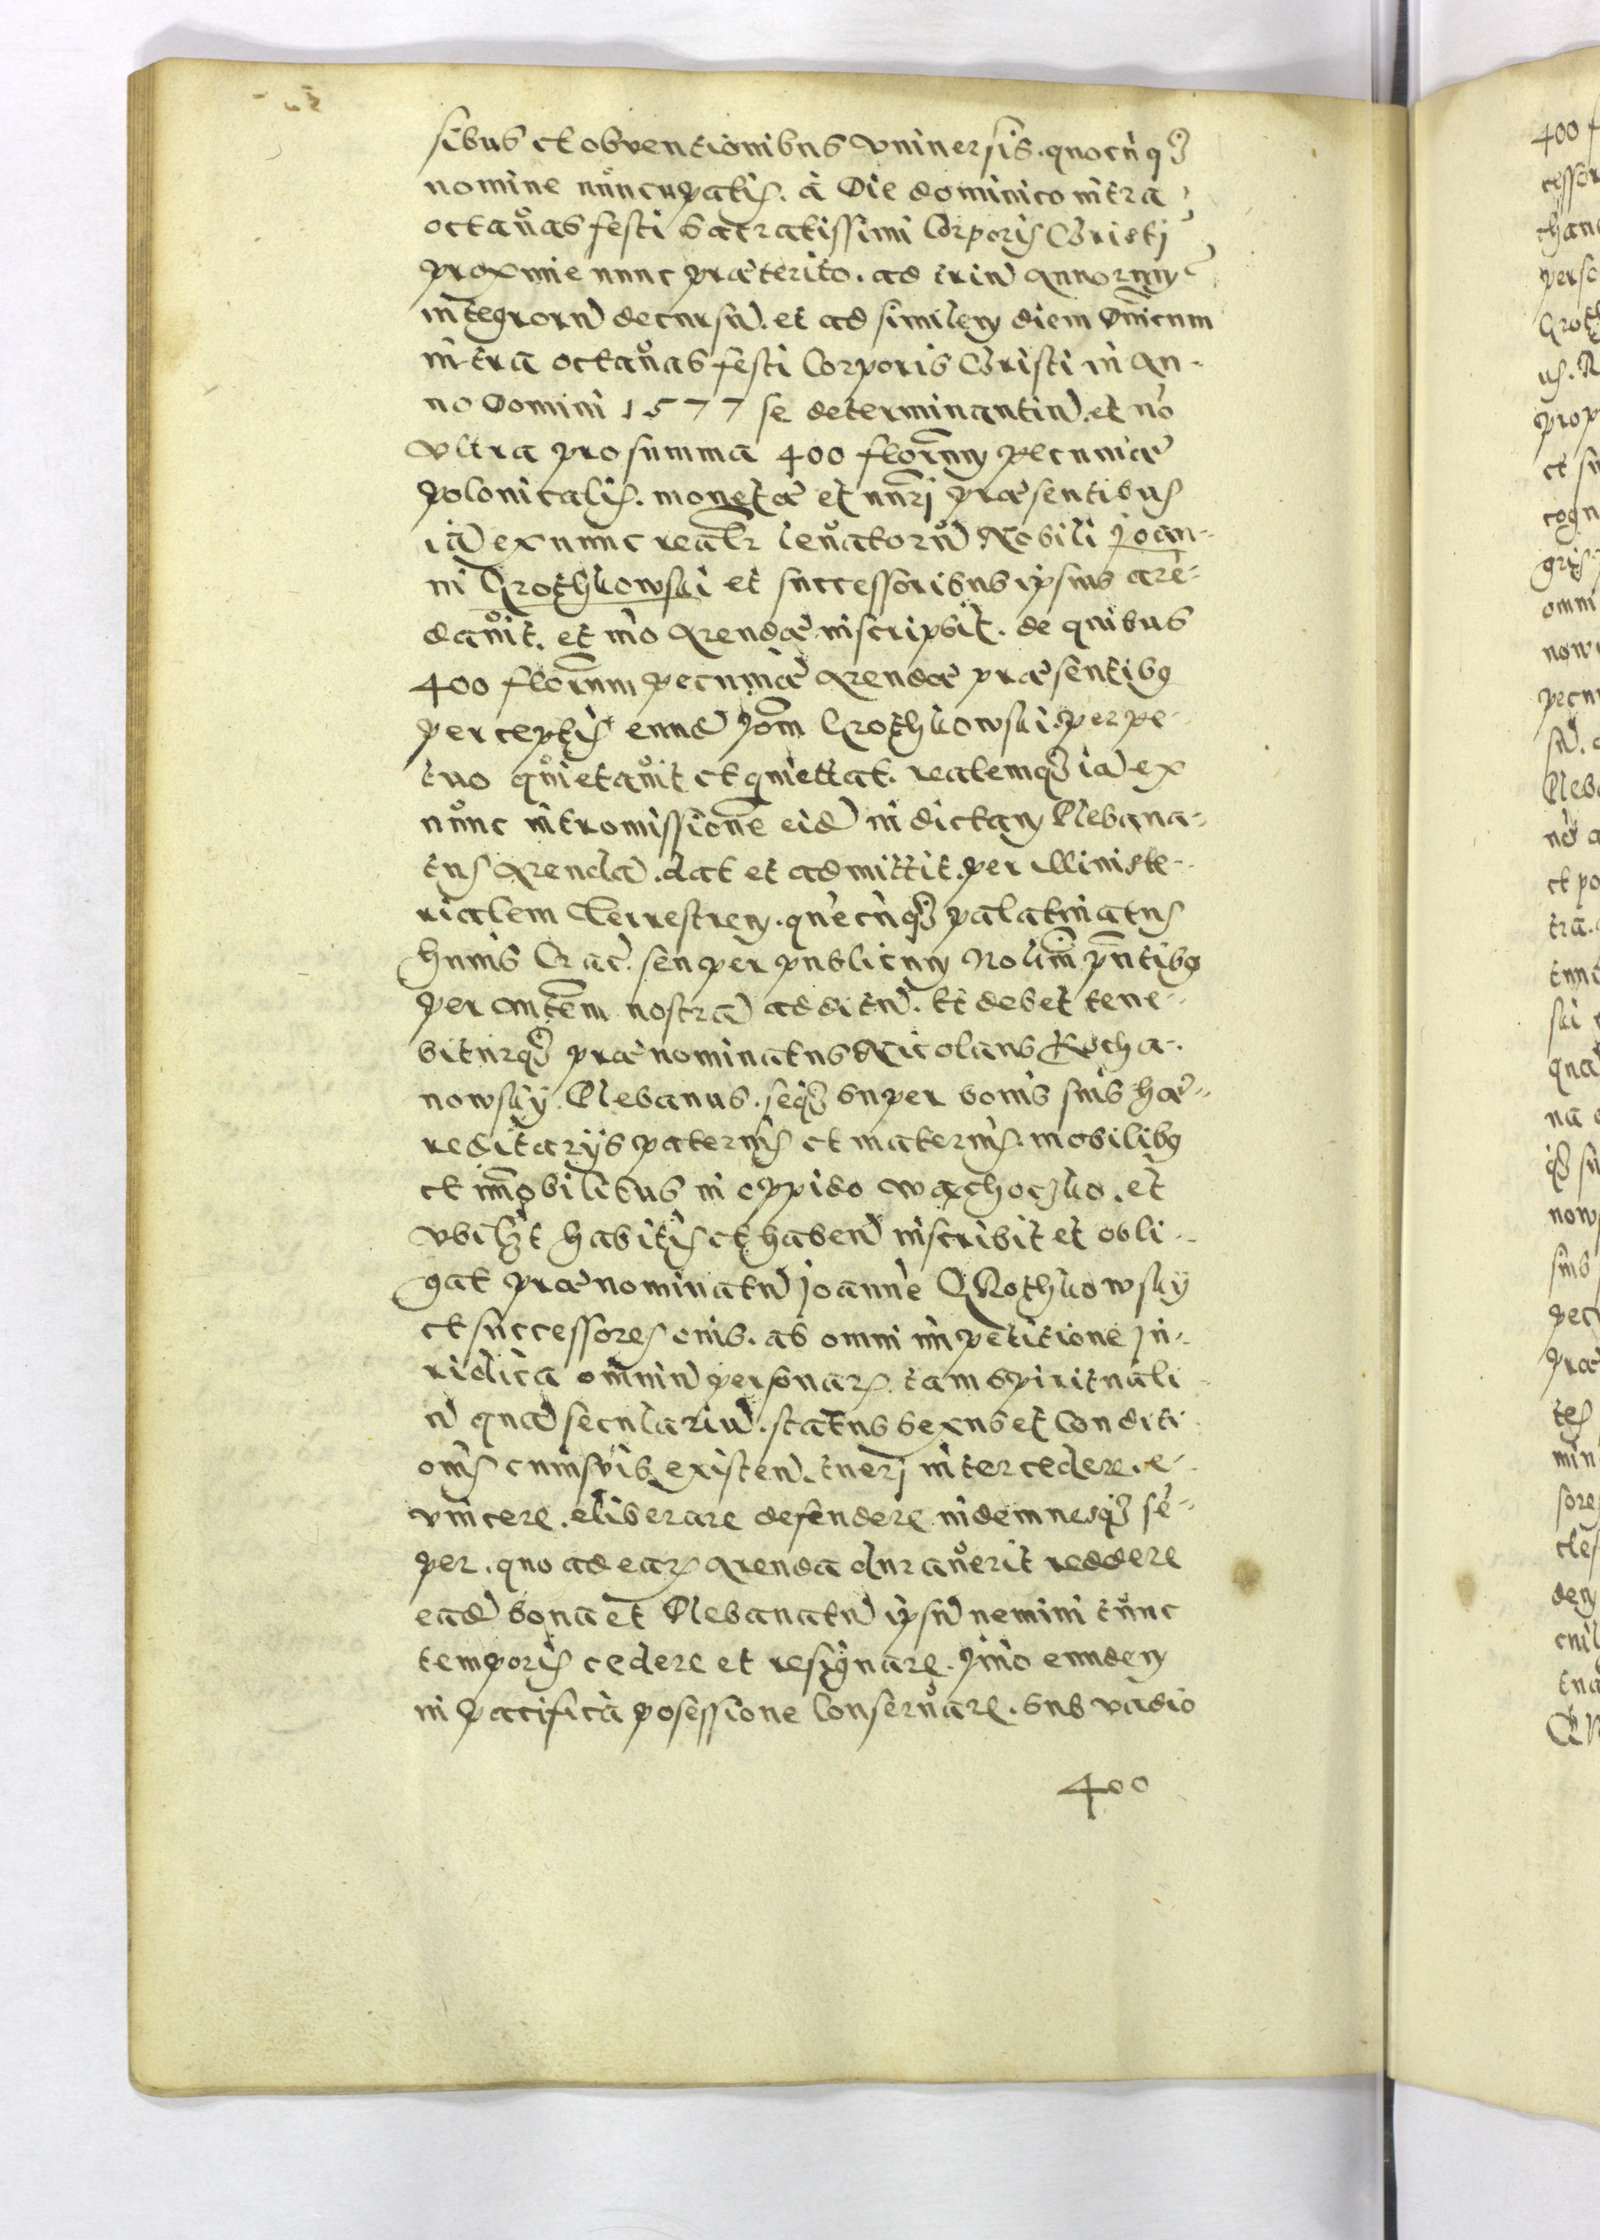 sibus et obventionibus universis. quocūq3
nomine nuncupatis. à Die dominico intra
octavas festi Sacratissimi Corporis Christj
proxime nunc præterito. ad triū annorum
integrorū decursū. et ad similem diem Dn̄icum
intra octavas festi Corporis Christi in An-
no Domini 1577 se determinantiū. et nō
ultra pro summa 400 floren̄um pecuniæ
polonicalis. monetæ et nūrj præsentibus
iā ex nunc realr̄ levatorū Nobili Joan-
ni Grothkowski et successoribus ipsius arē-
davit. et mō Arendæ inscripsit. de quibus
400 floren̄um pecuniæ Arendæ præsentibg
perceptis eund Joēm Grothkowski. perpe-
tuo quietavit et quiettat. realemq3 iā ex
nunc intromissionē eid in dictam Plebana-
tus Arendā. dat et admittit. per Ministe-
rialem Terrestrem. quēcūq3 palatinatus
huius Crac. seu per publicum Nolium pn̄tibg
per Autem nostrā additū. Et debet tene-
biturq3 prænominatus Nicolaus Kocha-
nowsky Plebanus. seq3 super bonis suis hæ-
reditarijs paternis et maternis. mobilibg
et im̄obilibus in oppido Wachoczko. et
ubilzt habitis et haben inscribit et obli-
gat prænominatū Joannē GRothkowsky
et successores eius. ab omni impetitione Ju-
ridica omniū personar. tam spirituali-
ū quā seculariū. status sexus et Conditi
onis cuiusvis existen. tuerj intercedere. e-
vincere. eliberare defendere indemnesq3 sē-
per. quo ad ear Arenda duraverit reddere
eadē bona et Plebanatū ipsū nemini tunc
temporis cedere et resignare. Jmo eundem
in pacifica posessione Conservare. sub vadio
400